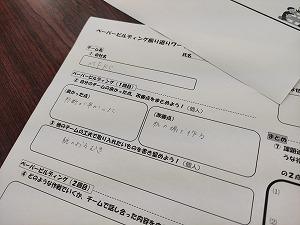 ペーパービルディング振り返りワー
チーム名
① 会社名
氏名
ペーパービルディング【1回目】
② 自分のチームの良かった点、改善点をまとめよう！（個人）
（良かった点）
（改善点）
③ 他のチームの工夫で取り入れたいものを書き留めよう！（個人）
紙のおりむき
ペーパービルディング【2回目】
④ どのような作戦でいくか、チームで話し合った内容を
まとめ
① 課題
うな
の2点
(1)
(2)